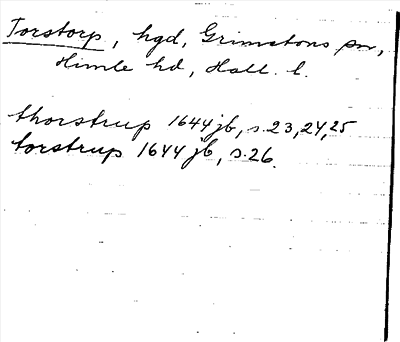 Torstorp, hgd, Grimetons sn,
Himle hd, Hall. l.
thorstrup 1644 jb, s. 23, 24, 25
torstrup 1644 jb, s. 26.